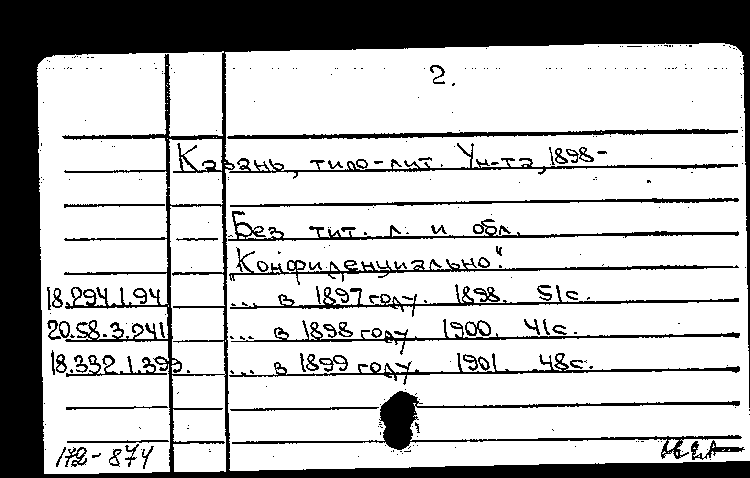 2.
Казань, типо-лит. Ун-та, 1898-
Без тит. л. и обл.
"Конфиденциально".
18.294.1.94 ... в 1897 году. 1898. 51с.
20.58.3.241 ... в 1898 году. 1900. 41с.
18.332.1.399. ... в 1899 году. 1901. 48с.
172-874